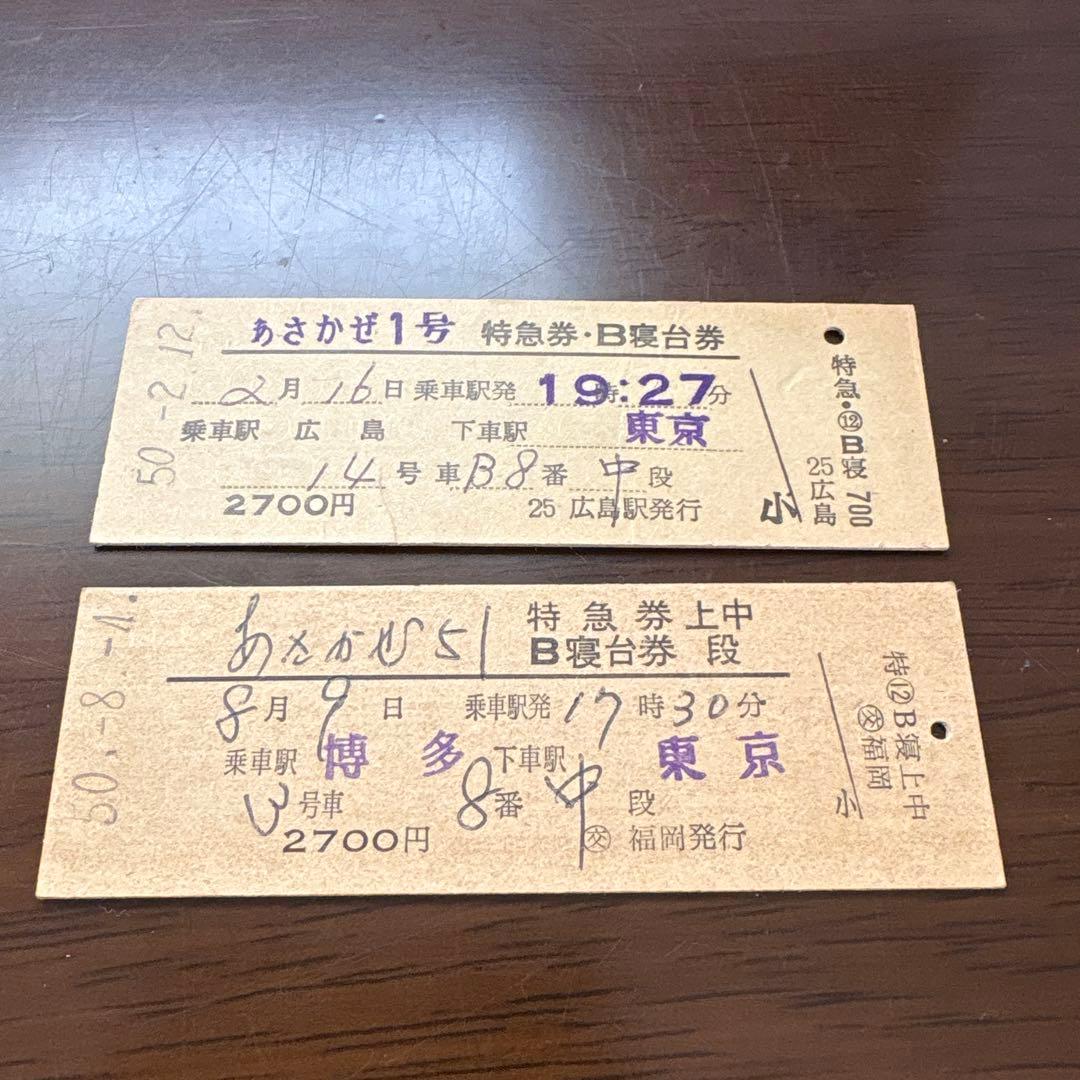 50.-2.12.
あさかぜ1号 特急券・B寝台券
2月16日 乗車駅発 19時:27分
乗車駅 広島 下車駅 東京
14号車 B8番 中段
2700円 25 広島駅発行
小
特急・⑫B寝 700
25広島
50.-8.-4.
あさかぜ51 特急券 上中
B寝台券 段
8月9日 乗車駅発 17時30分
乗車駅 博多 下車駅 東京
3号車 8番 中段
2700円 ㊋福岡発行
小
特⑫B寝上中